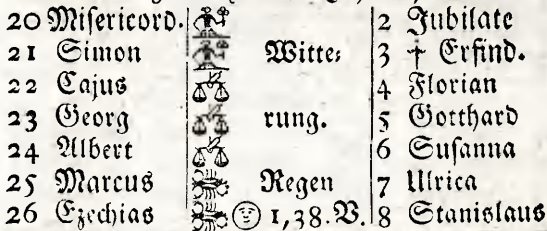 20 Miſericord. 2 Jubilate
21 Simon Witte⸗ 3 † Erfind.
22 Cajus 4 Florian
23 Georg rung. 5 Gotthard
24 Albert 6 Suſanna
25 Marcus Regen 7 Ulrica
26 Ezechias 1,38.V. 8 Stanislaus